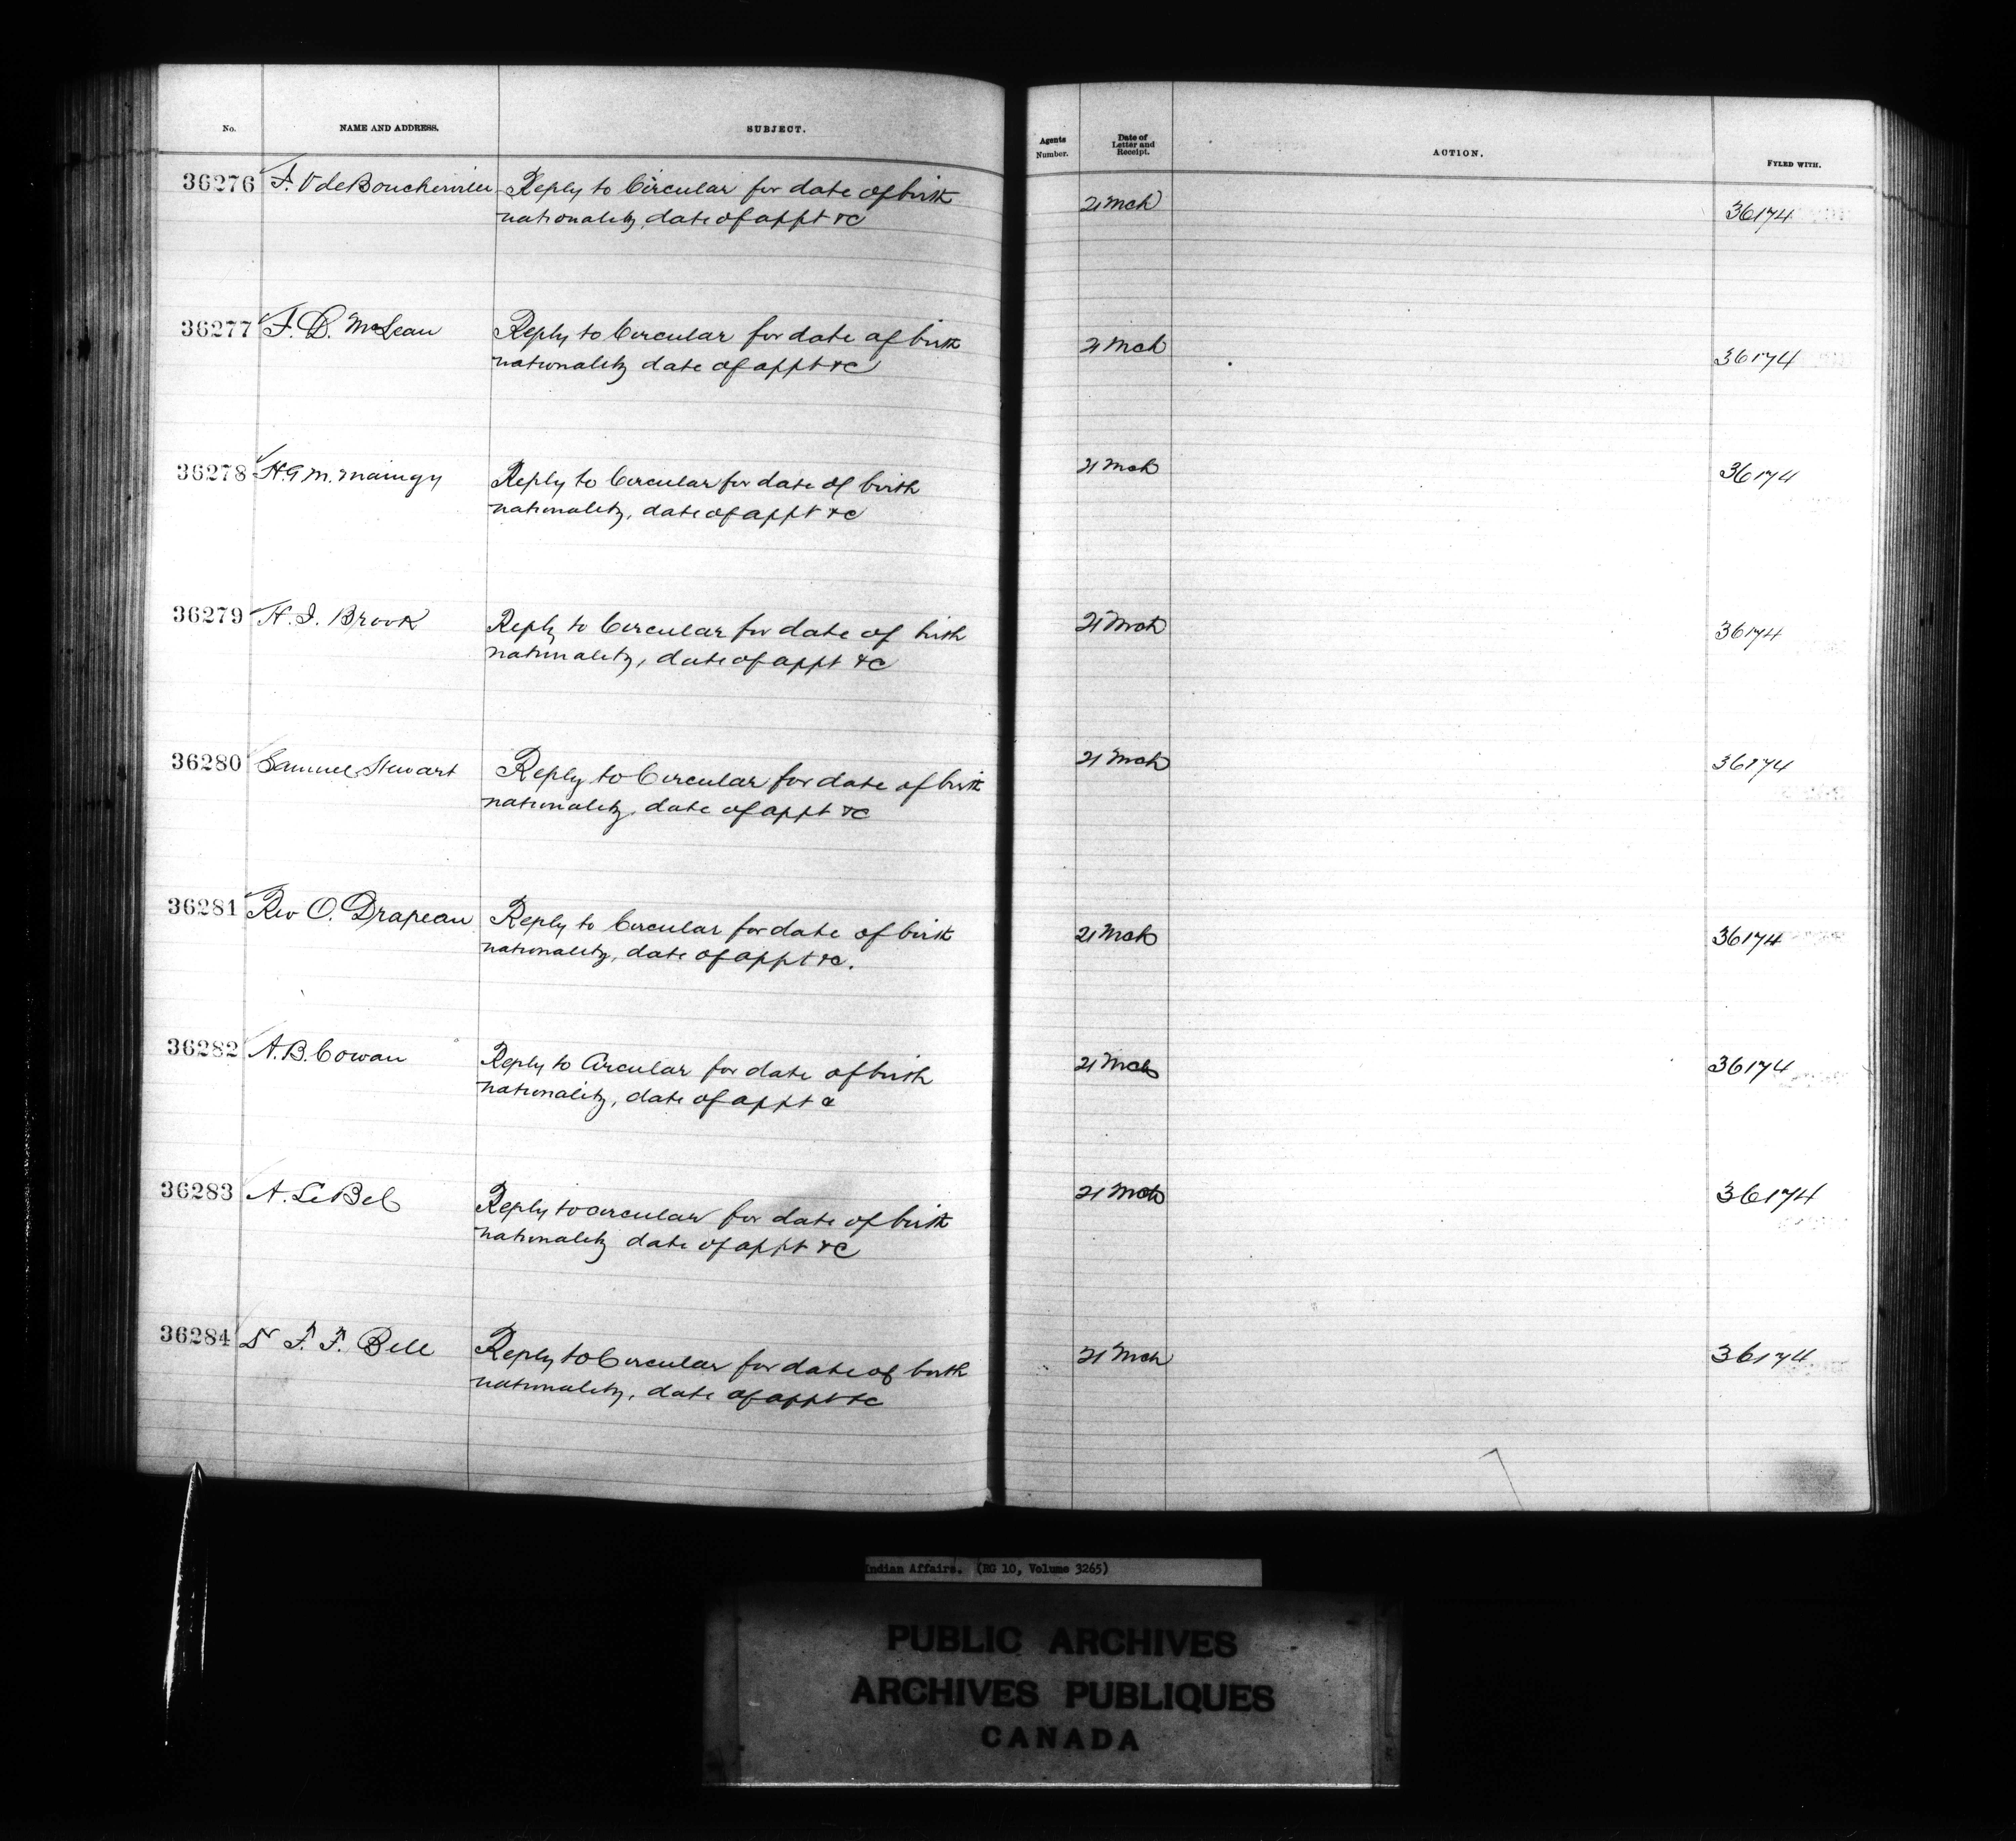 No. NAME AND ADDRESS. SUBJECT. Agents Number. Date of Letter and Receipt. ACTION. FYLED WITH.
36276 F. V deBoucherville Reply to Circular for date of birth 21 Mch 36174
nationality, date of appt &c
36277 J. D. McLean Reply to Circular for date of birth 21 Mch 36174
nationality date of appt &c
36278 H. G. M. Maingy Reply to Circular for date of birth 21 Mch 36174
nationality, date of appt &c
36279 H. J. Brook Reply to Circular for date of birth 21 Mch 36174
nationality, date of appt &c
36280 Samuel Stewart Reply to Circular for date of birth 21 Mch 36174
nationality, date of appt &c
36281 Rev O. Drapeau Reply to Circular for date of birth 21 Mch 36174
nationality, date of appt &c.
36282 A. B. Cowan Reply to Circular for date of birth 21 Mch 36174
nationality, date of appt &
36283 A. LeBel Reply to circular for date of birth 21 Mch 36174
nationality date of appt &c
36284 Dr F. F. Bell Reply to Circular for date of birth 21 Mch 36174
nationality, date of appt &c
Indian Affairs. (RG 10, Volume 3265)
PUBLIC ARCHIVES
ARCHIVES PUBLIQUES
CANADA